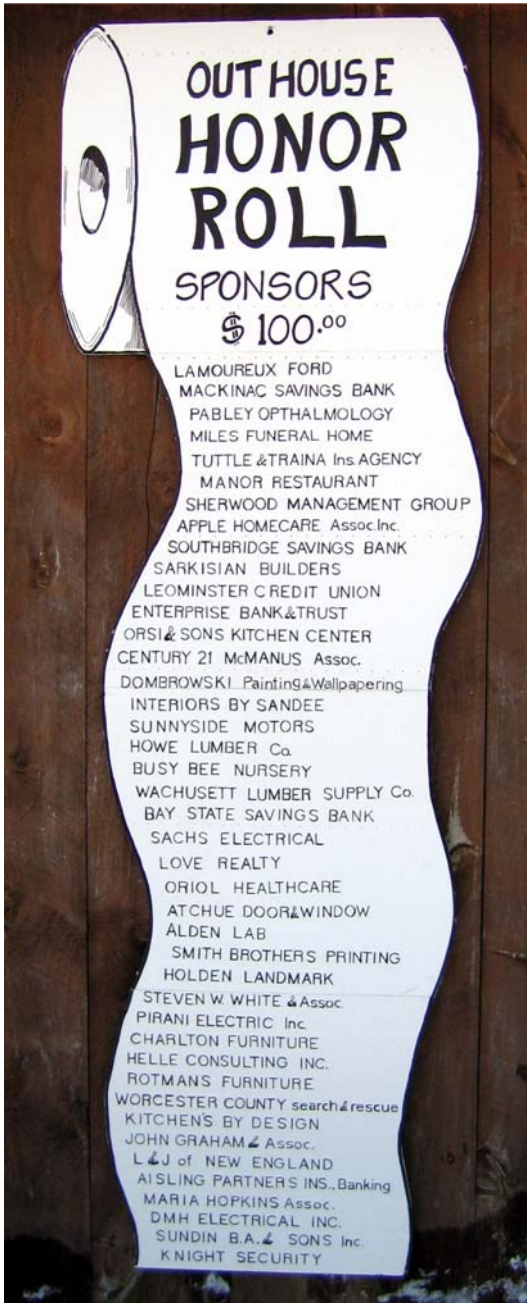 OUT HOUSE
HONOR
ROLL
SPONSORS
$ 100.00
LAMOUREUX FORD
MACKINAC SAVINGS BANK
PABLEY OPTHALMOLOGY
MILES FUNERAL HOME
TUTTLE & TRAINA Ins. AGENCY
MANOR RESTAURANT
SHERWOOD MANAGEMENT GROUP
APPLE HOMECARE Assoc. Inc.
SOUTHBRIDGE SAVINGS BANK
SARKISIAN BUILDERS
LEOMINSTER CREDIT UNION
ENTERPRISE BANK & TRUST
ORSI & SONS KITCHEN CENTER
CENTURY 21 McMANUS Assoc.
DOMBROWSKI Painting & Wallpapering
INTERIORS BY SANDEE
SUNNYSIDE MOTORS
HOWE LUMBER Co.
BUSY BEE NURSERY
WACHUSETT LUMBER SUPPLY Co.
BAY STATE SAVINGS BANK
SACHS ELECTRICAL
LOVE REALTY
ORIOL HEALTHCARE
ATCHUE DOOR & WINDOW
ALDEN LAB
SMITH BROTHERS PRINTING
HOLDEN LANDMARK
STEVEN W. WHITE & Assoc.
PIRANI ELECTRIC Inc.
CHARLTON FURNITURE
HELLE CONSULTING INC.
ROTMANS FURNITURE
WORCESTER COUNTY search & rescue
KITCHEN'S BY DESIGN
JOHN GRAHAM & Assoc.
L & J of NEW ENGLAND
AISLING PARTNERS INS., Banking
MARIA HOPKINS Assoc.
DMH ELECTRICAL INC.
SUNDIN B.A. & SONS Inc.
KNIGHT SECURITY